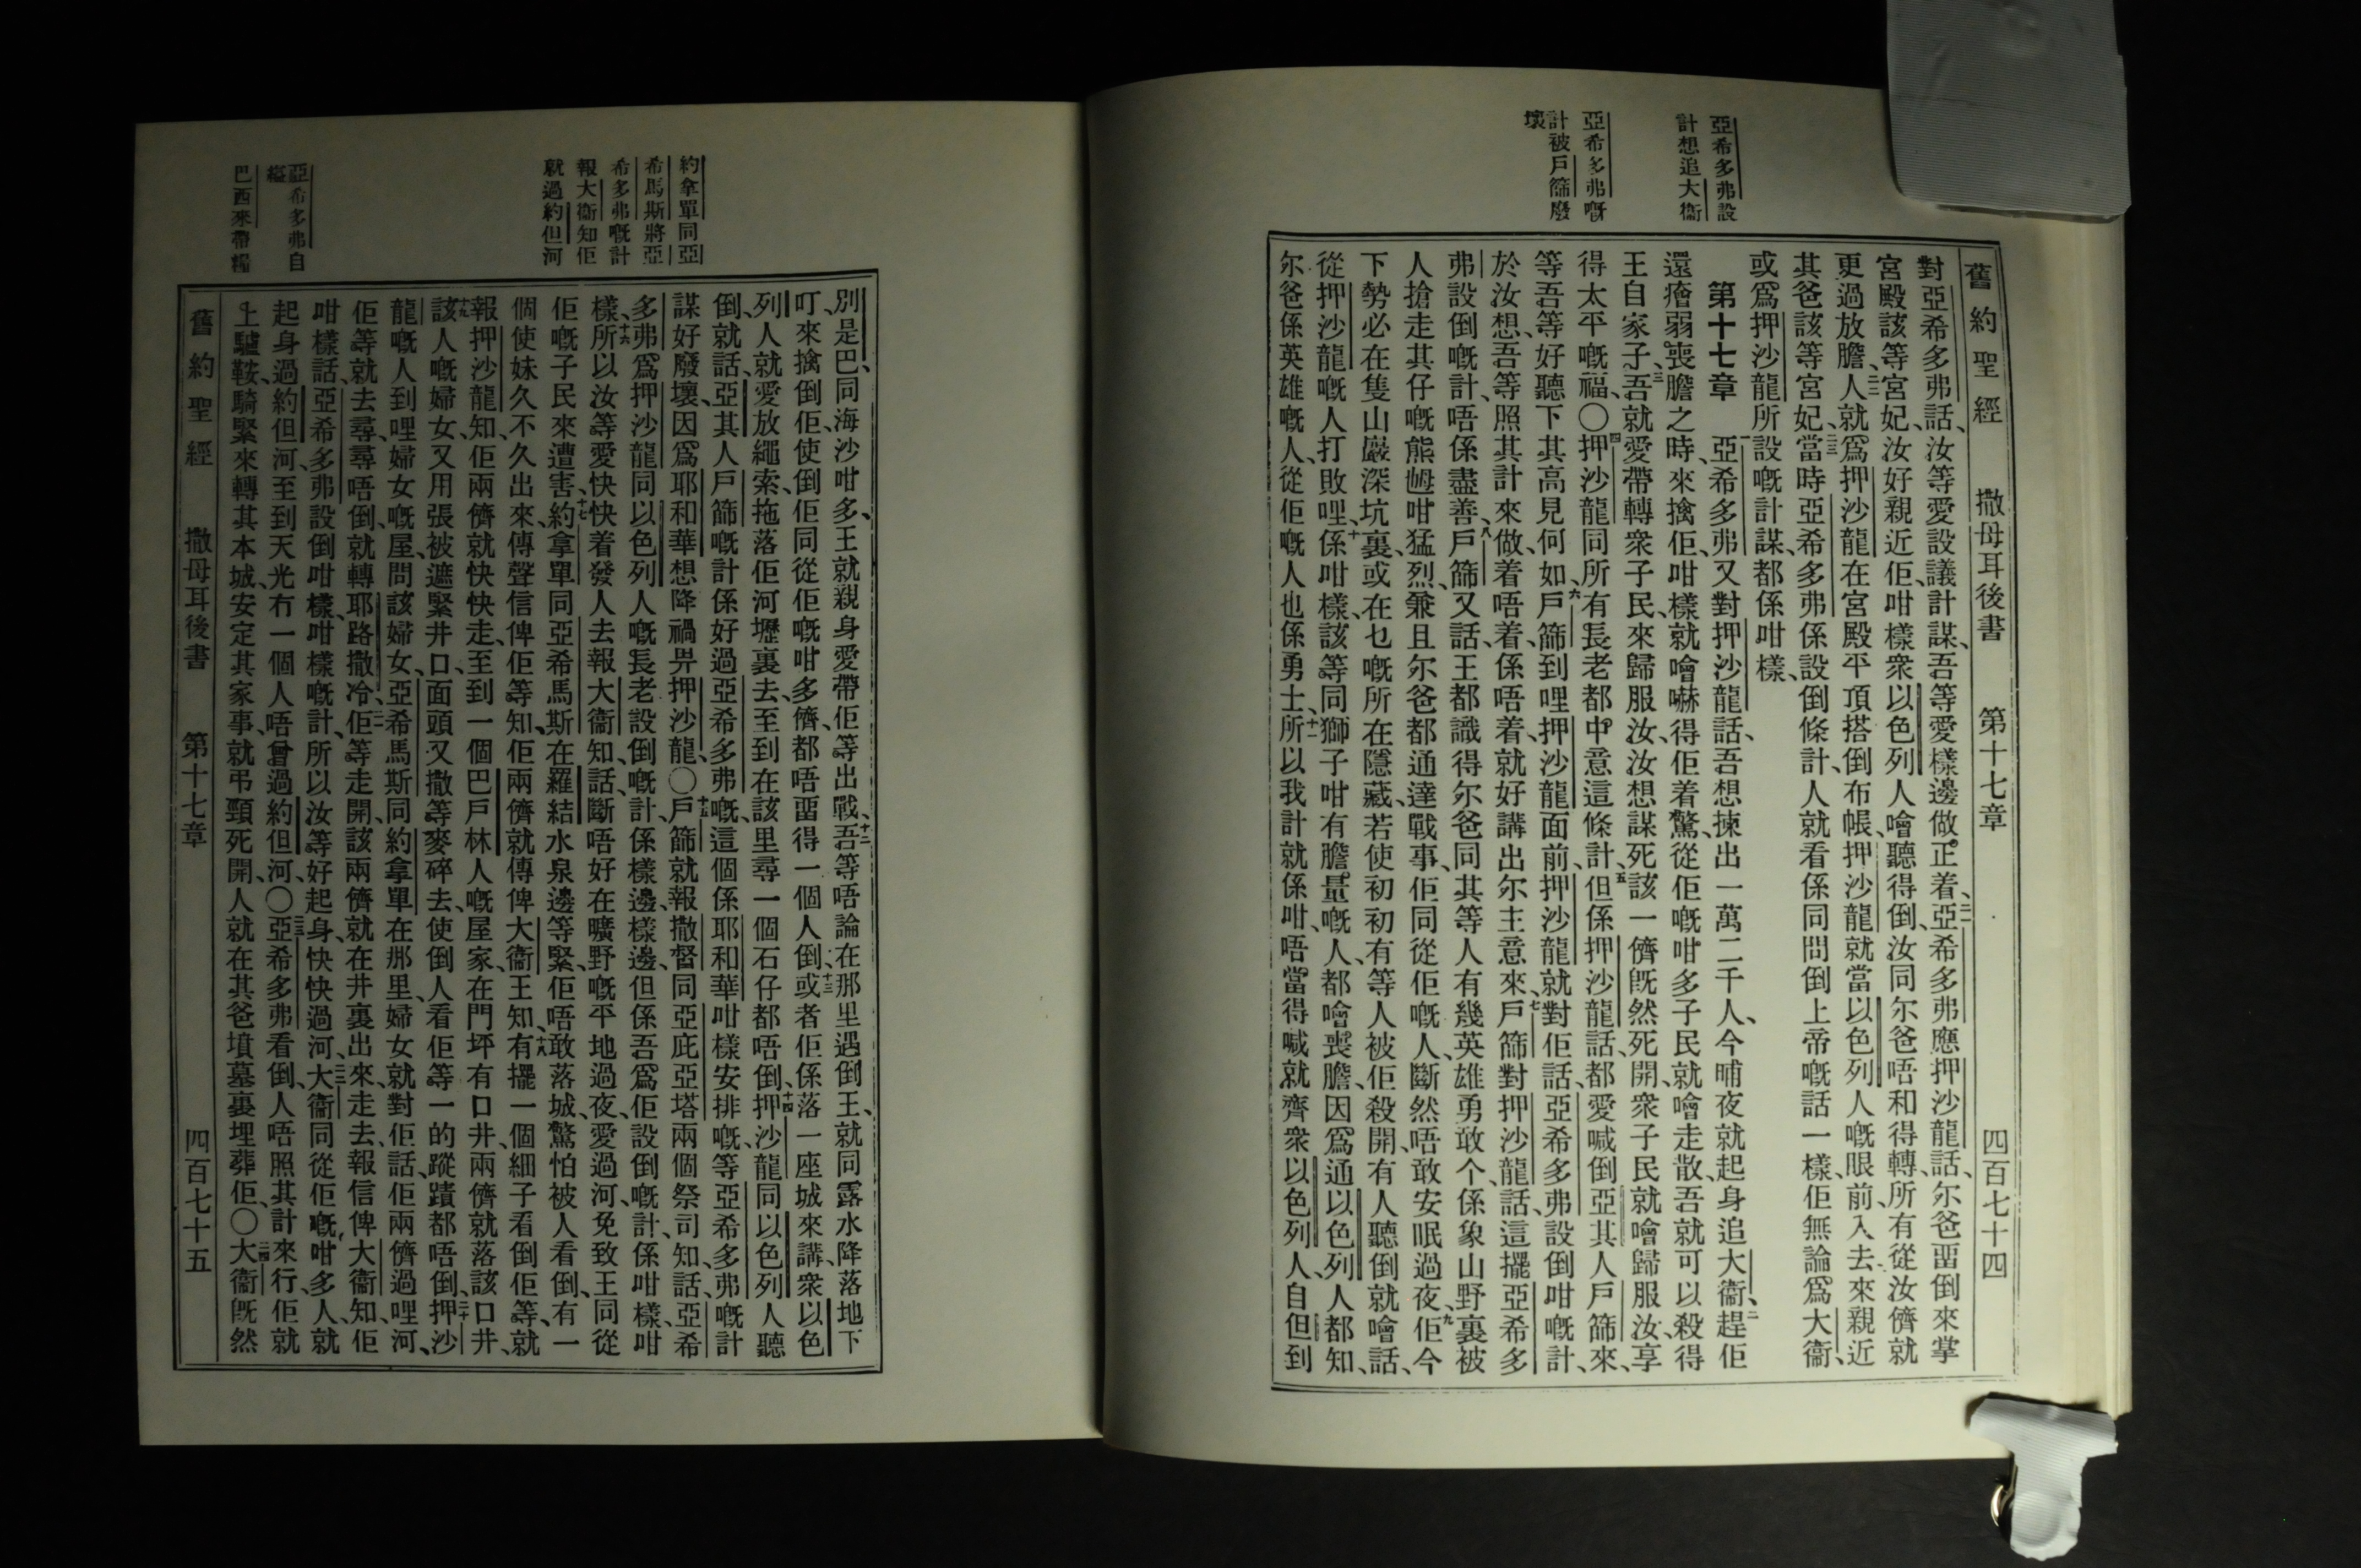 亞希多弗設
計想追大衞
亞希多弗嘅
計被戶篩廢
壞
舊約聖經　撒母耳後書　第十七章　四百七十四
對亞希多弗話、汝等愛設議計謀、吾等愛樣邊做正着、二一亞希多弗應押沙龍話、尔爸畱倒來掌
宮殿該等宮妃、汝好親近佢、咁樣衆以色列人噲聽得倒、汝同尔爸唔和得轉、所有從汝儕就
更過放膽、二二人就爲押沙龍在宮殿平頂搭倒布帳、押沙龍就當以色列人嘅眼前入去來親近
其爸該等宮妃、二三當時亞希多弗係設倒條計、人就看係同問倒上帝嘅話一樣、佢無論爲大衞、
或爲押沙龍所設嘅計謀、都係咁樣、
第十七章　一亞希多弗又對押沙龍話、吾想揀出一萬二千人、今晡夜就起身追大衞、二趕佢
還癐弱喪膽之時、來擒佢、咁樣就噲嚇得佢着驚、從佢嘅咁多子民、就噲走散、吾就可以殺得
王自家子、三吾就愛帶轉衆子民、來歸服汝、汝想謀死該一儕旣然死開、衆子民就噲歸服汝、享
得太平嘅福、〇四押沙龍同所有長老都中意這條計、五但係押沙龍話、都愛喊倒亞其人戶篩來、
等吾等好聽下其高見何如、六戶篩到哩押沙龍面前、押沙龍就對佢話、亞希多弗設倒咁嘅計、
於汝想、吾等照其計來做、着唔着、係唔着、就好講出尔主意來、七戶篩對押沙龍話、這擺亞希多
弗設倒嘅計、唔係盡善、八戶篩又話、王都識得尔爸同其等人有幾英雄勇敢个、係象山野裏被
人搶走其仔嘅熊乸咁猛烈、兼且尔爸都通達戰事、佢同從佢嘅人、斷然唔敢安眠過夜、九佢今
下勢必在隻山巖深坑裏、或在乜嘅所在隱藏、若使初初有等人被佢殺開、有人聽倒就噲話、
從押沙龍嘅人打敗哩、十係咁樣、該等同獅子咁有膽量嘅人、都噲喪膽、因爲通以色列人都知、
尔爸係英雄嘅人、從佢嘅人也係勇士、十一所以我計就係咁、唔當得喊就齊衆以色列人、自但到
約拿單同亞
希馬斯將亞
希多弗嘅計
報大衞知佢
就過約但河
亞希多弗自
縊
巴西來帶糧
別是巴、同海沙咁多、王就親身愛帶佢等出戰、十二吾等唔論在那里遇倒王、就同露水降落地下
叮來擒倒佢、使倒佢同從佢嘅咁多儕、都唔畱得一個人倒、十三或者佢係落一座城來講、衆以色
列人就愛放繩索、拖落佢河壢裏去、至到在該里尋一個石仔都唔倒、十四押沙龍同以色列人聽
倒、就話、亞其人戶篩嘅計係好過亞希多弗嘅、這個係耶和華咁樣安排嘅、等亞希多弗嘅計
謀好廢壞、因爲耶和華想降禍畀押沙龍、〇十五戶篩就報撒督同亞庇亞塔兩個祭司知、話、亞希
多弗爲押沙龍同以色列人嘅長老設倒嘅計、係樣邊樣邊、但係吾爲佢設倒嘅計、係咁樣咁
樣、十六所以汝等愛快快着發人去報大衞知、話、斷唔好在曠野嘅平地過夜、愛過河、免致王同從
佢嘅子民來遭害、十七約拿單同亞希馬斯在羅結水泉邊等緊、佢唔敢落城、驚怕被人看倒、有一
個使妹久不久出來、傳聲信俾佢等知、佢兩儕就傳俾大衞王知、十八有擺一個細子看倒佢等、就
報押沙龍知、佢兩儕就快快走、至到一個巴戶林人嘅屋家、在門坪有口井、兩儕就落該口井、
十九該人嘅婦女、又用張被遮緊井口、面頭又撒等麥碎去、使倒人看佢等一的蹤蹟都唔倒、二十押沙
龍嘅人到哩婦女嘅屋、問該婦女、亞希馬斯同約拿單在那里、婦女就對佢話、佢兩儕過哩河、
佢等就去尋、尋唔倒、就轉耶路撒冷、二一佢等走開、該兩儕就在井裏出來、走去報信俾大衞知、佢
咁樣話、亞希多弗設倒咁樣咁樣嘅計、所以汝等好起身、快快過河、二二大衞同從佢嘅咁多人、就
起身過約但河、至到天光冇一個人唔曾過約但河、〇二三亞希多弗看倒、人唔照其計來行、佢就
上驢鞍、騎緊來轉其本城、安定其家事、就弔頸死開、人就在其爸墳墓裏埋葬佢、〇二四大衞旣然
舊約聖經　撒母耳後書　第十七章　四百七十五